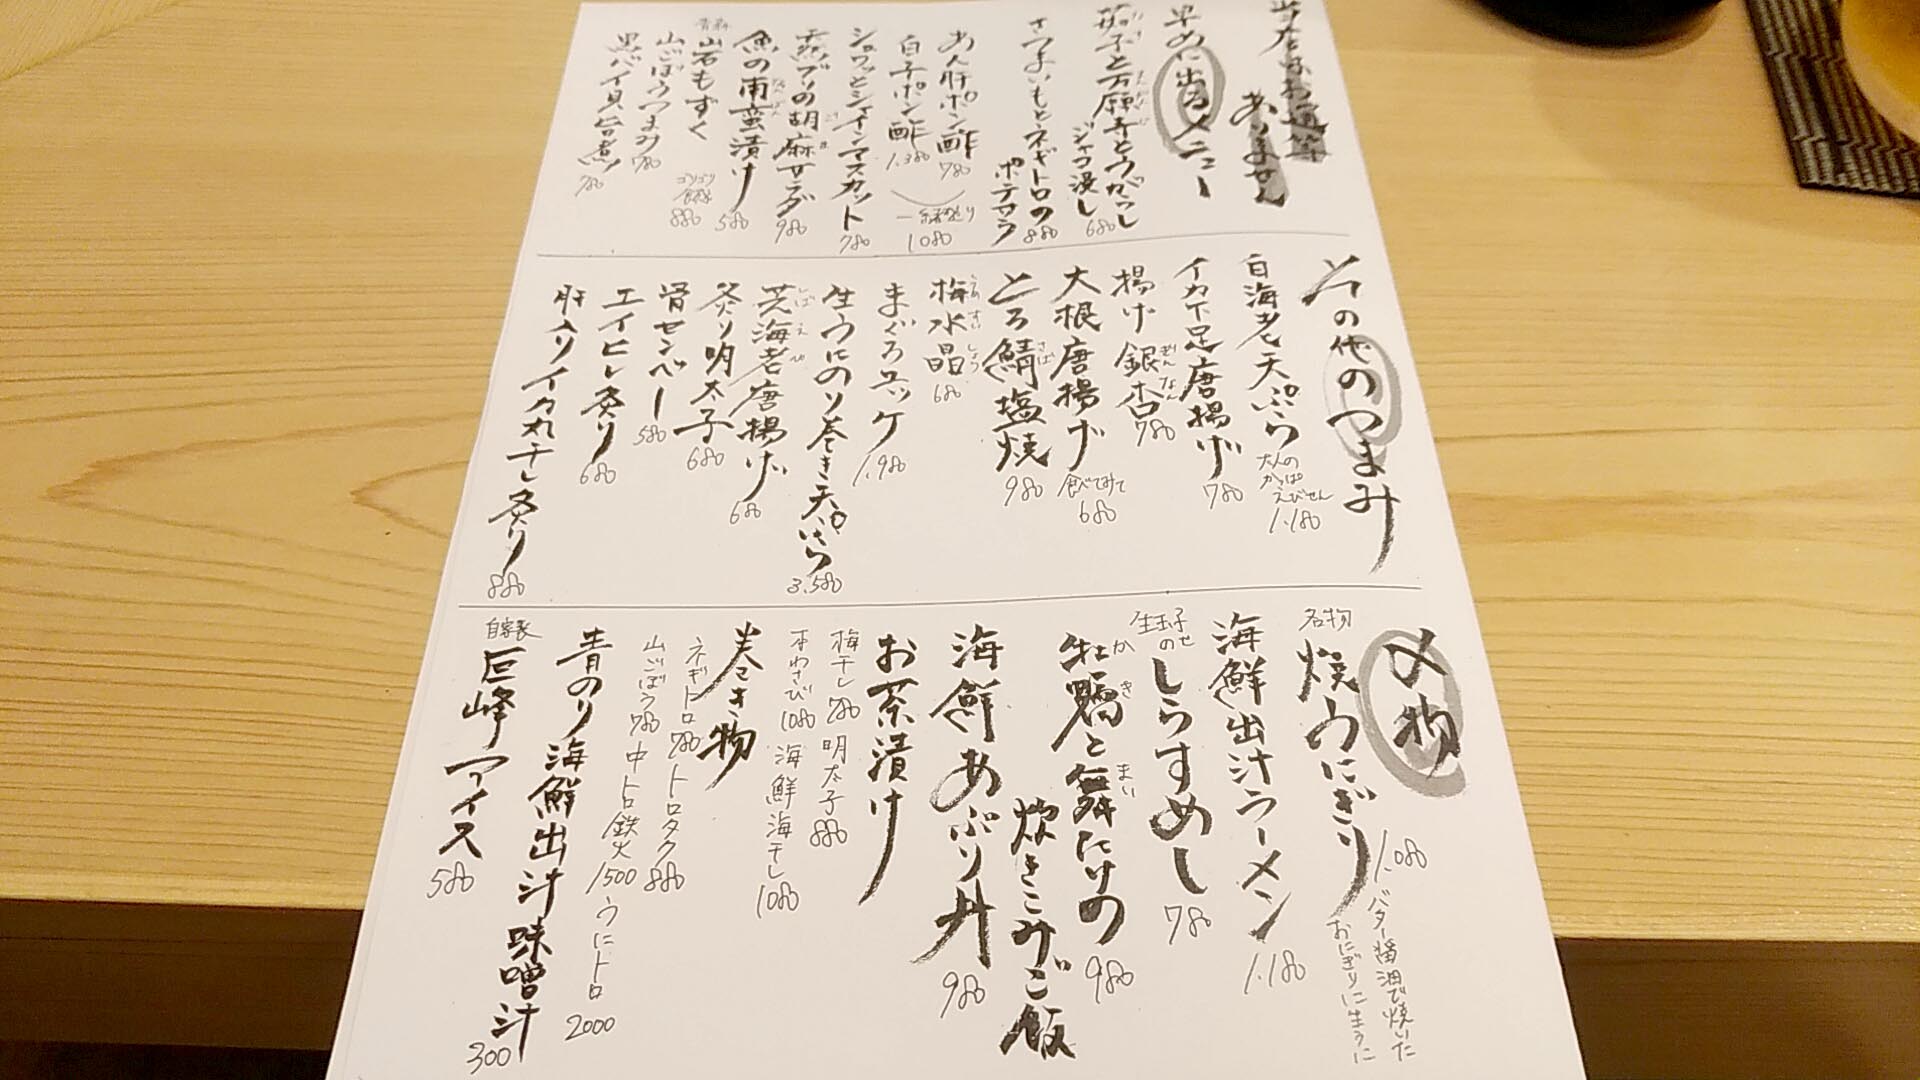 当店はお通し
ありません
早めに出るメニュー
茄子と万願寺とうがらし
ジャコ浸し
680
さつまいもとネギトロの
ポテサラ
880
あん肝ポン酢
780
白子ポン酢
1.380
1080
シュワッとシャインマスカット
780
天然ブリの胡麻サラダ
980
魚の南蛮漬け
580
岩もずく
880
山ごぼうつまみ
780
黒バイ貝旨煮
780
その他のつまみ
白海老天ぷら
大人の
かっぱ
えびせん
1.180
イカ下足唐揚げ
780
揚げ銀杏
ぎんなん
780
大根唐揚げ
食べてみて
680
とろ鯖塩焼
さば
980
梅水晶
うめすいしょう
680
まぐろユッケ
1.980
生うにのり巻き天ぷら
3.580
芝海老唐揚げ
しばえび
680
炙り明太子
680
骨センベー
580
エイヒレ炙り
680
肝入りイカ丸干し炙り
880
〆物
名物
焼うにぎり
1.080
バター醤油で焼いた
おにぎりに生うに
海鮮出汁ラーメン
1.180
しらすめし
780
牡蠣と舞たけの
かき
まい
炊きこみご飯
980
海鮮あぶり丼
980
お茶漬け
梅干し 780 明太子 880
本わさび 1080 海鮮海干し 1080
巻き物
ネギトロ 780 トロタク 880
山ごぼう 780 中トロ鉄火 1500 うにトロ 2000
青のり海鮮出汁味噌汁
300
自家製
巨峰アイス
580